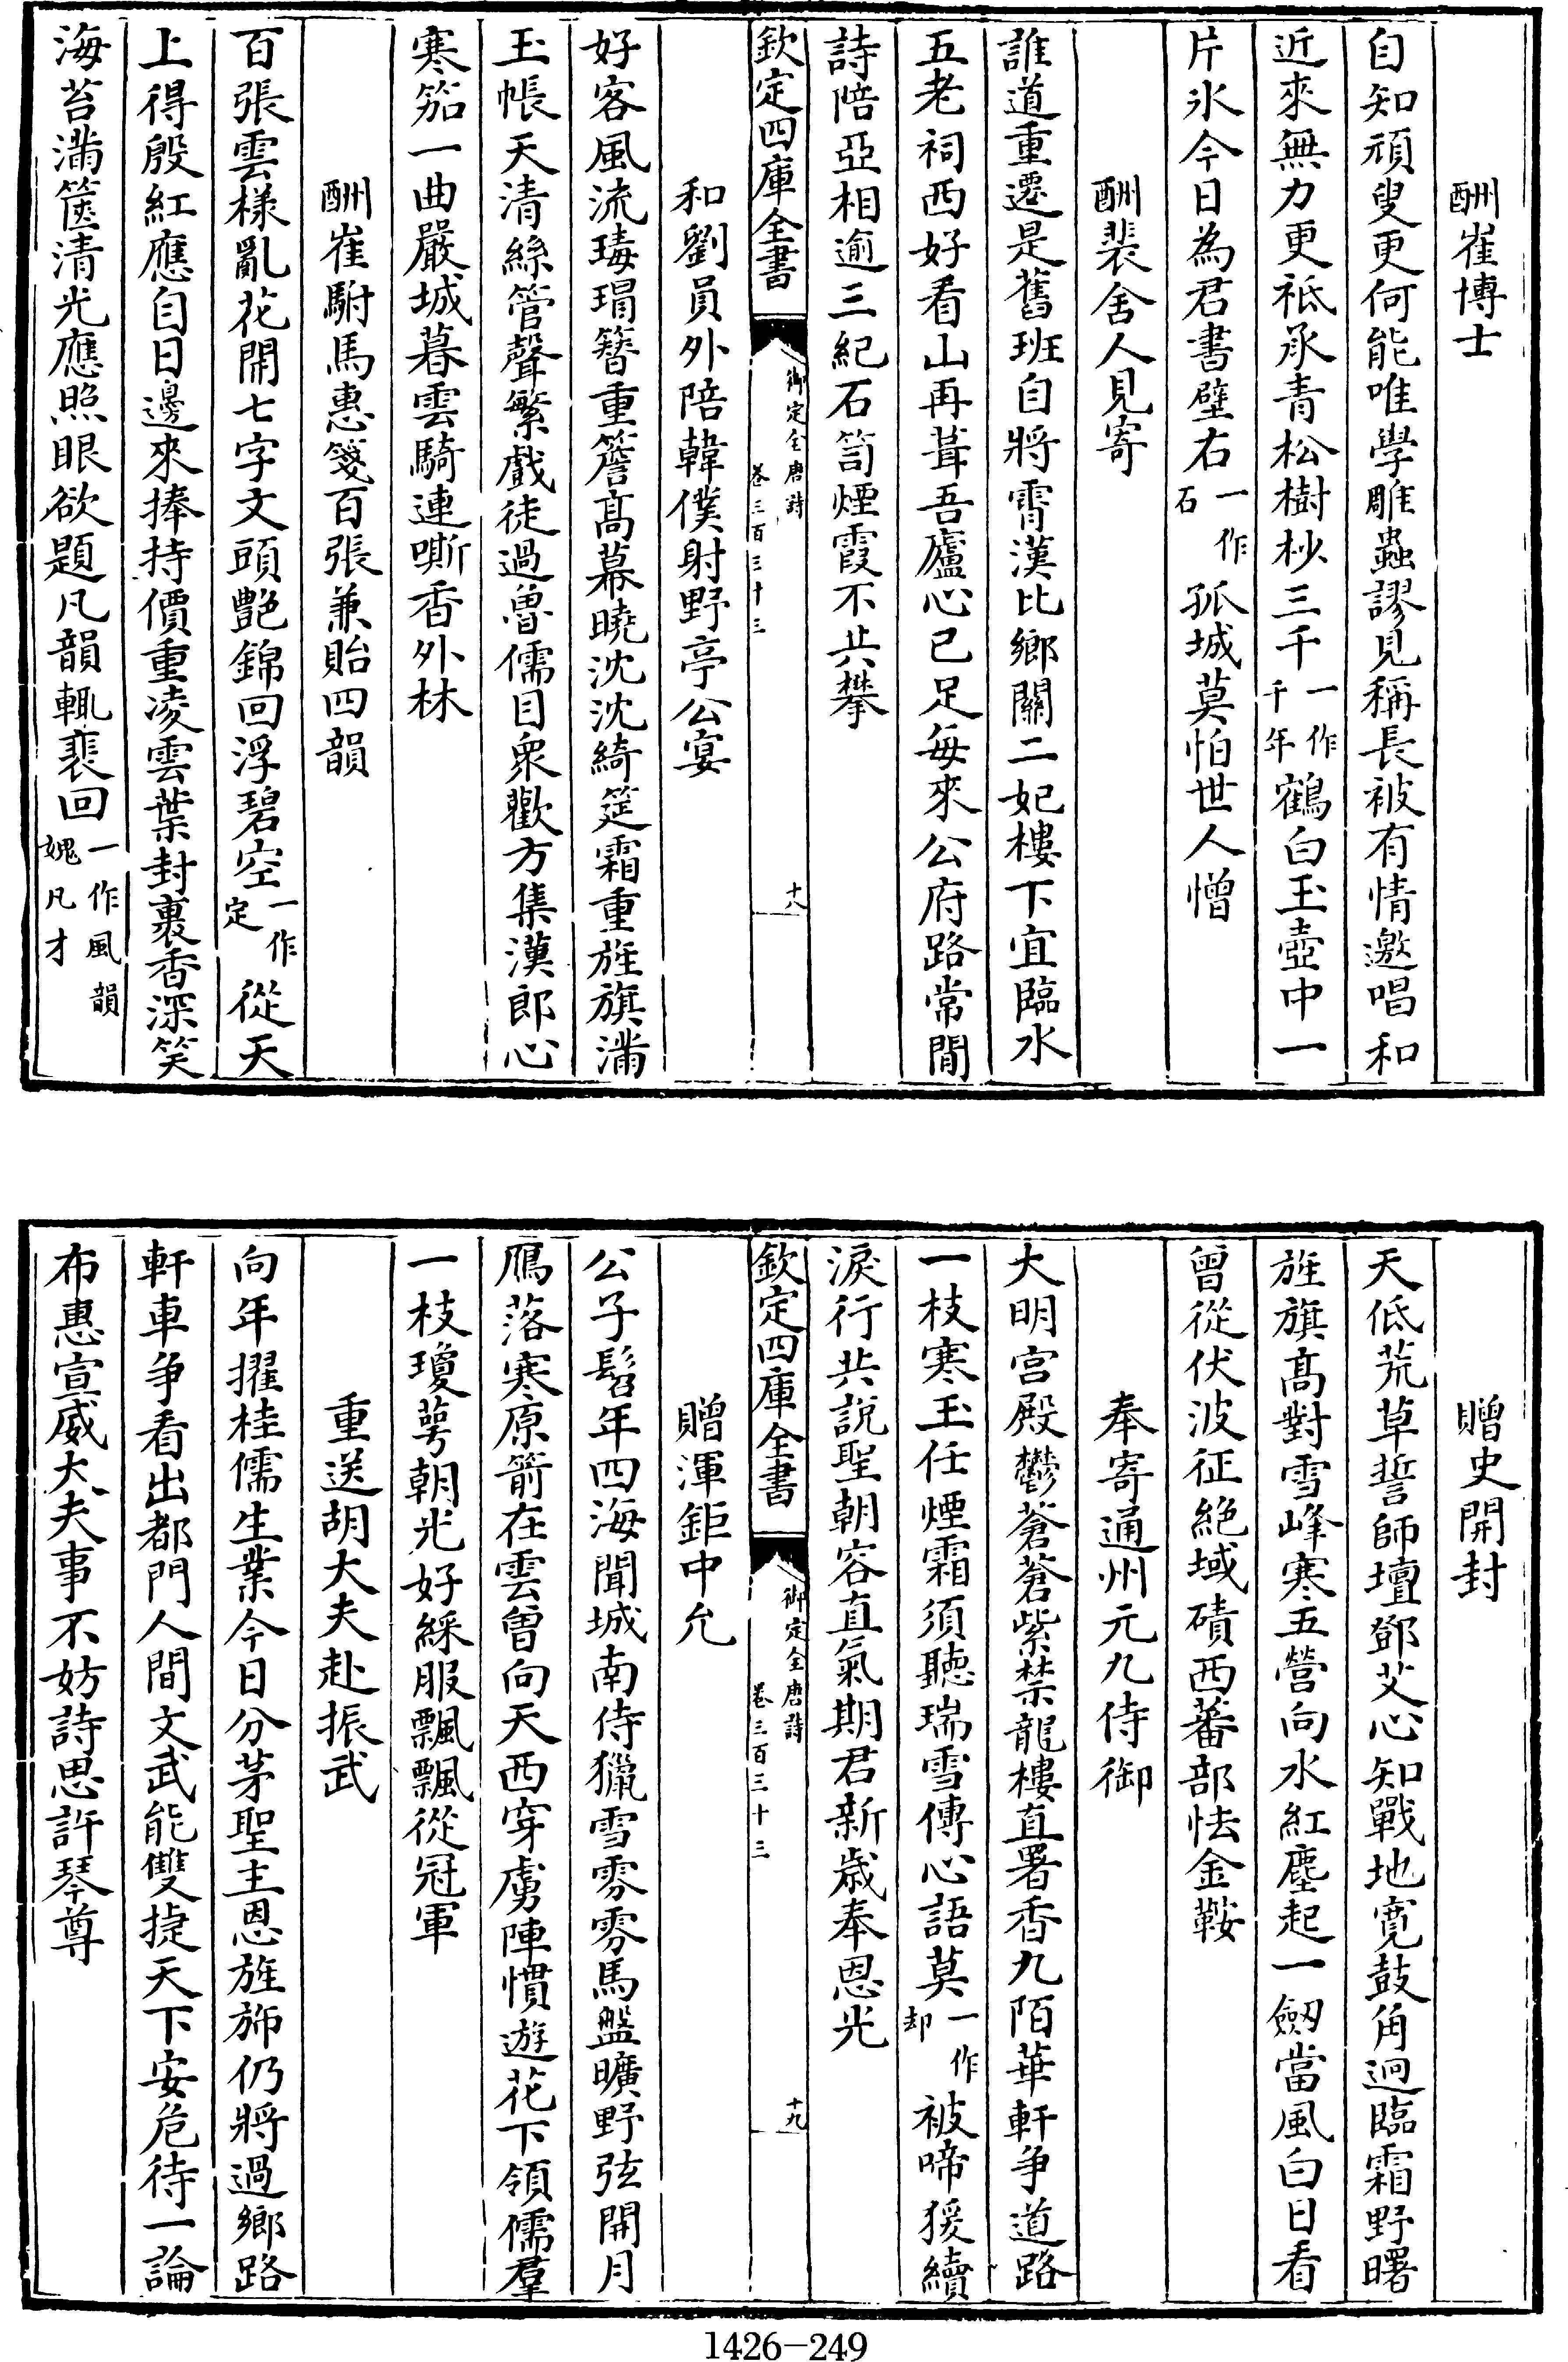 酬崔博士
自知頑叟更何能唯學雕蟲謬見稱長被有情邀唱和
近來無力更祗承青松樹杪三千一作千年鶴白玉壺中一
片氷今日為君書壁右一作石孤城莫怕世人憎
酬裴舍人見寄
誰道重遷是舊班自將霄漢比鄉關二妃樓下宜臨水
五老祠西好看山再葺吾廬心已足每來公府路常閒
詩陪亞相逾三紀石笥煙霞不共攀
欽定四庫全書
御定全唐詩
卷三百三十三
十八
和劉員外陪韓僕射野亭公宴
好客風流瑇瑁簪重簷髙幕曉沈沈綺筵霜重旌旗滿
玉帳天清絲管聲繁戲徒過魯儒目衆歡方集漢郎心
寒笳一曲嚴城暮雲騎連嘶香外林
酬崔駙馬惠箋百張兼貽四韻
百張雲樣亂花開七字文頭艷錦回浮碧空一作定從天
上得殷紅應自日邊來捧持價重凌雲葉封裹香深笑
海苔滿篋清光應照眼欲題凡韻輒裴回一作風韻媿凡才
贈史開封
天低荒草誓師壇鄧艾心知戰地寛鼓角迥臨霜野曙
旌旗髙對雪峰寒五營向水紅塵起一劒當風白日看
曾從伏波征絶域磧西蕃部怯金鞍
奉寄通州元九侍御
大明宫殿鬱蒼蒼紫禁龍樓直署香九陌華軒争道路
一枝寒玉任煙霜須聽瑞雪傳心語莫一作却被啼猨續
淚行共說聖朝容直氣期君新歳奉恩光
欽定四庫全書
御定全唐詩
卷三百三十三
十九
贈渾鉅中允
公子髫年四海聞城南侍獵雪雰雰馬盤曠野弦開月
鴈落寒原箭在雲曾向天西穿虜陣慣遊花下領儒羣
一枝瓊萼朝光好綵服飄飄從冠軍
重送胡大夫赴振武
向年擢桂儒生業今日分茅聖主恩旌斾仍將過鄉路
軒車争看出都門人間文武能雙捷天下安危待一論
布惠宣威大夫事不妨詩思許琴尊
1426-249